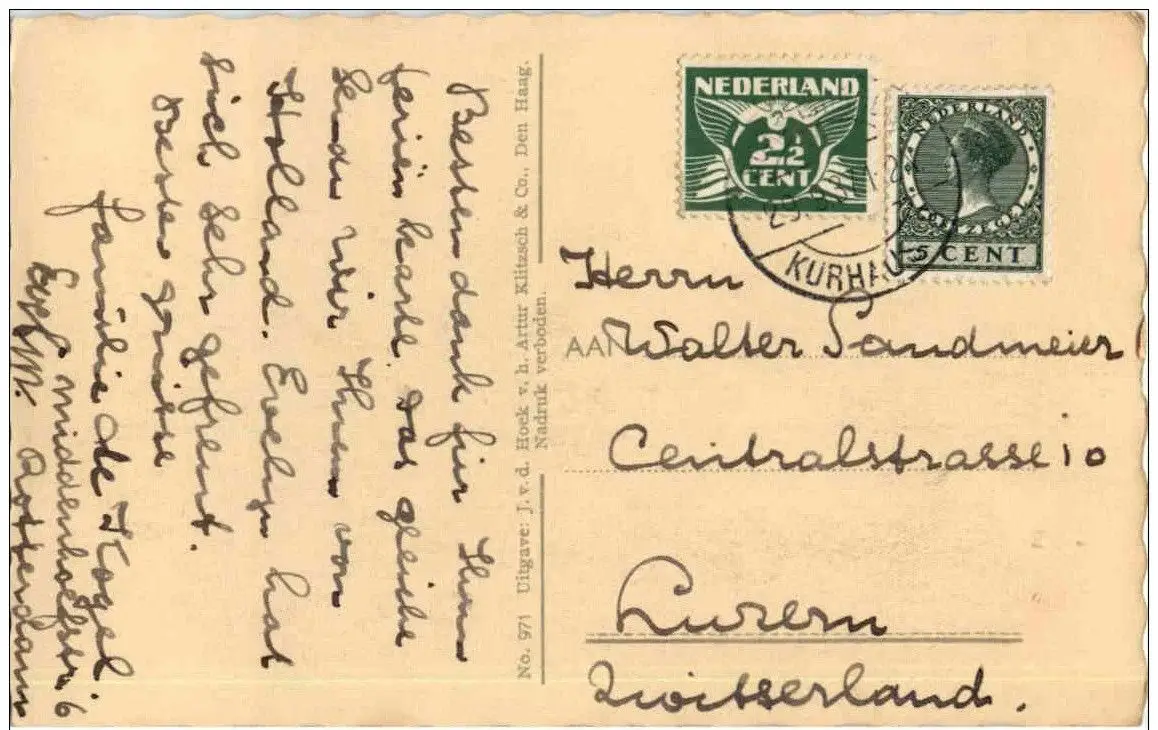 Besten dank für Ihren
ferien karte. Das gleiche
senden wir Ihnen von
Holland. Evelyn hat
sich sehr gefreut.
Beste grüsse
familie de Kogel
middenhoefstr. 6
Rotterdam
No. 971 Uitgave: J. v. d. Hoek v. h. Artur Klitzsch & Co., Den Haag.
Nadruk verboden.
NEDERLAND
2½
CENT
NEDERLAND
5 CENT
KURHAU
Herrn
AAN Walter Sandmeier
Centralstrasse 10
Luzern
Zwitserland.